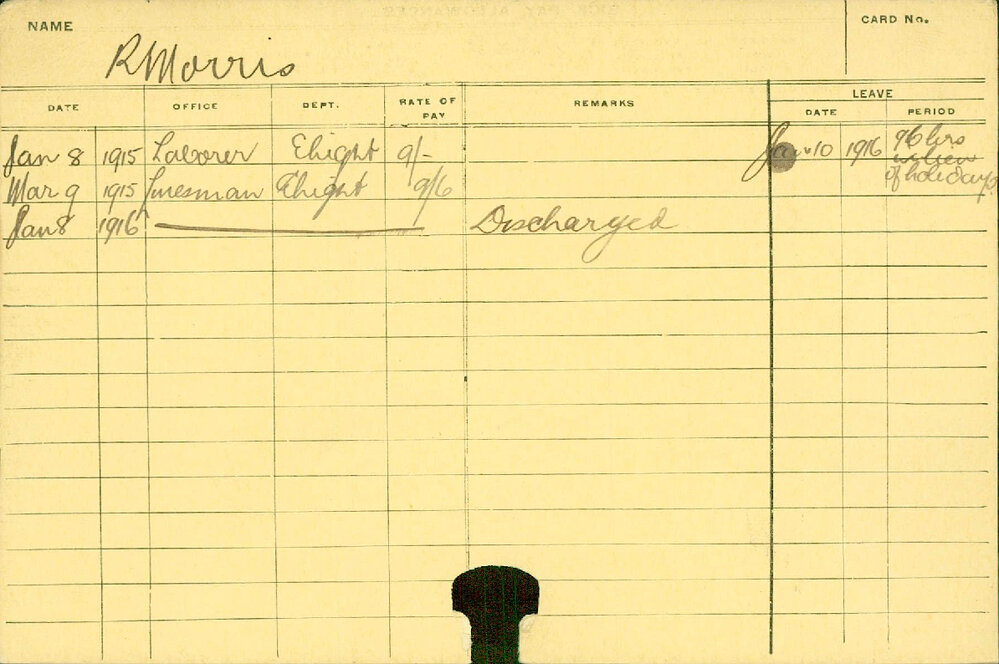 NAME
CARD No.
R Morris
DATE OFFICE DEPT. RATE OF PAY REMARKS LEAVE
DATE PERIOD
Jan 8 1915 Laborer Elight 9/- Jan 10 1916 96 hrs
in lieu
Mar 9 1915 Linesman Elight 9/6 of holidays
Jan 8 1916 Discharged